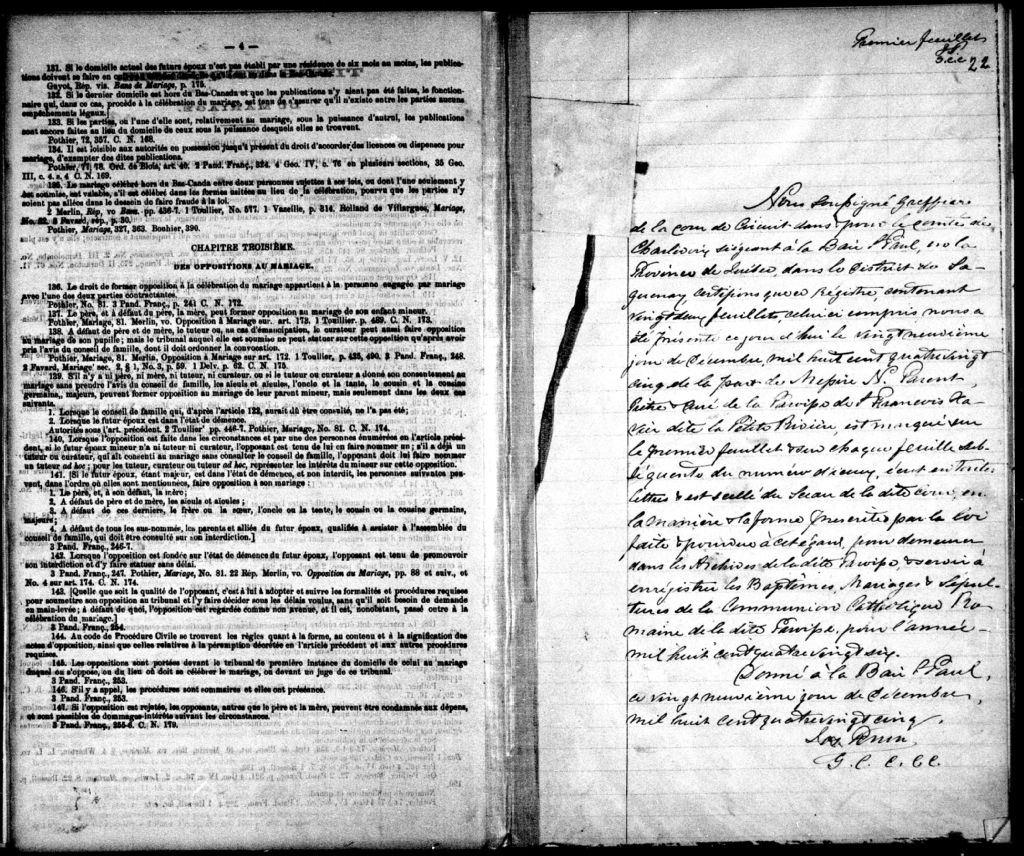 — 4 —
131. Si le domicile actuel des futurs époux n'est pas établi par une résidence de six mois au moins, les publica-
tions doivent se faire en
Guyot, Rép. vis. Bans de Mariage, p. 175.
132. Si le dernier domicile est hors du Bas-Canada et que les publications n'y aient pas été faites, le fonction-
naire qui, dans ce cas, procède à la célébration du mariage, est tenu de s'assurer qu'il n'existe entre les parties aucuns
empêchements légaux.]
133. Si les parties, ou l'une d'elle sont, relativement au mariage, sous la puissance d'autrui, les publications
sont encore faites au lieu du domicile de ceux sous la puissance desquels elles se trouvent.
Pothier, 72, 357. C. N. 168.
134. Il est loisible aux autorités en possession jusqu'à présent du droit d'accorder des licences ou dispenses pour
mariage, d'exempter des dites publications.
Pothier, 77, 78. Ord. de Blois, art. 40. 2 Pand. Franç., 324. 4 Geo. IV, c. 76 en plusieurs sections, 35 Geo.
III, c. 4, s. 4 C. N. 169.
135. Le mariage célébré hors du Bas-Canda entre deux personnes sujettes à ses lois, ou dont l'une seulement y
est soumise, est valable, s'il est célébré dans les formes usitées au lieu de la célébration, pourvu que les parties n'y
soient pas allées dans le dessein de faire fraude à la loi.
2 Merlin, Rép, vo Bans. pp. 436-7. 1 Toullier, No. 577. 1 Vazeille, p. 314. Rolland de Villargues, Mariage,
No. 22. 3 Favard, rép., p. 30.
Pothier, Mariage, 327, 363. Bouhier, 390.
CHAPITRE TROISIÈME.
DES OPPOSITIONS AU MARIAGE.
136. Le droit de former opposition à la célébration du mariage appartient à la personne engagée par mariage
avec l'une des deux parties contractantes.
Pothier, No. 81. 3 Pand. Franç., p. 241 C. N. 172.
137. Le père, et à défaut du père, la mère, peut former opposition au mariage de son enfant mineur.
Pothier, Mariage, 81. Merlin, vo. Opposition à Mariage sur. art. 173. 1 Toullier. p. 489. C. N. 173.
138. A défaut de père et de mère, le tuteur ou, en cas d'émancipation, le curateur peut aussi faire opposition
au mariage de son pupille; mais le tribunal auquel elle est soumise ne peut statuer sur cette opposition qu'après avoir
pris l'avis du conseil de famille, dont il doit ordonner la convocation.
Pothier, Mariage, 81. Merlin, Opposition à Mariage sur art. 172. 1 Toullier, p. 435, 490. 3 Pand. Franç., 248.
2 Favard, Mariage sec. 2, § 1, No. 3, p. 59. 1 Delv. p. 62. C. N. 175.
139. S'il n'y a ni père, ni mère, ni tuteur, ni curateur, ou si le tuteur ou curateur a donné son consentement au
mariage sans prendre l'avis du conseil de famille, les aïeuls et aïeules, l'oncle et la tante, le cousin et la cousine
germains, majeurs, peuvent former opposition au mariage de leur parent mineur, mais seulement dans les deux cas
suivants.
1. Lorsque le conseil de famille qui, d'après l'article 122, aurait dû être consulté, ne l'a pas été;
2. Lorsque le futur époux est dans l'état de démence.
Autorités sous l'art. précédent. 2 Toullier pp. 446-7. Pothier, Mariage, No. 81. C. N. 174.
140. Lorsque l'opposition est faite dans les circonstances et par une des personnes énumérées en l'article précé-
dent, si le futur époux mineur n'a ni tuteur ni curateur, l'opposant est tenu de lui en faire nommer un; s'il a déjà un
tuteur ou curateur, qui ait consenti au mariage sans consulter le conseil de famille, l'opposant doit lui faire nommer
un tuteur ad hoc; pour les tuteur, curateur ou tuteur ad hoc, représenter les intérêts du mineur sur cette opposition.
141. [Si le futur époux, étant majeur, est dans l'état de démence, et non interdit, les personnes suivantes peu-
vent, dans l'ordre où elles sont mentionnées, faire opposition à son mariage:
1. Le père, et, à son défaut, la mère;
2. A défaut de père et de mère, les aïeuls et aïeules;
3. A défaut de ces derniers, le frère ou la sœur, l'oncle ou la tante, le cousin ou la cousine germains,
majeurs;
4. A défaut de tous les sus-nommés, les parents et alliés du futur époux, qualifiés à assister à l'assemblée du
conseil de famille, qui doit être consulté sur son interdiction.]
3 Pand. Franç., 246-7.
142. Lorsque l'opposition est fondée sur l'état de démence du futur époux, l'opposant est tenu de promouvoir
son interdiction et d'y faire statuer sans délai.
3 Pand. Franç., 247. Pothier, Mariage, No. 81. 22 Rép. Merlin, vo. Opposition au Mariage, pp. 88 et suiv., et
No. 4 sur art. 174. C. N. 174.
143. [Quelle que soit la qualité de l'opposant, c'est à lui à adopter et suivre les formalités et procédures requises
pour soumettre son opposition au tribunal et l'y faire décider sous les délais voulus, sans qu'il soit besoin de demande
en main-levée; à défaut de quoi, l'opposition est regardée comme non avenue, et il est, nonobstant, passé outre à la
célébration du mariage.]
3 Pand. Franç., 254.
144. Au code de Procédure Civile se trouvent les règles quant à la forme, au contenu et à la signification des
actes d'opposition, ainsi que celles relatives à la péremption décrétée en l'article précédent et aux autres procédures
requises.
145. Les oppositions sont portées devant le tribunal de première instance du domicile de celui au mariage
duquel on s'oppose, ou du lieu où doit se célébrer le mariage, ou devant un juge de ce tribunal.
3 Pand. Franç., 253.
146. S'il y a appel, les procédures sont sommaires et elles ont préséance.
3 Pand. Franç., 253.
147. Si l'opposition est rejetée, les opposants, autres que le père et la mère, peuvent être condamnés aux dépens,
et sont passibles de dommages-intérêts suivant les circonstances.
3 Pand. Franç., 255-6. C. N. 179.
Premier feuillet
22
Nous soussigné Greffier
de la cour de Circuit dans & pour le comté de
Charlevoix siégeant à la Baie St Paul, en la
Province de Québec, dans le District de Sa-
guenay certifions que ce Régistre, contenant
vingt deux feuillets, celui ci compris nous a
été présenté ce jour d'hui le vingt neuvième
jour de Décembre mil huit cent quatre vingt
cinq de la part de Messire N. Parent,
Prêtre & curé de la Paroisse de St Francois Xa-
vier dite la Petite Rivière, est marqué sur
le premier feuillet & sur chaque feuille sub-
séquente du numéro d'iceux, écrit en toutes
lettres & est scellé du Sceau de la dite cour, en
la manière & la forme prescrites par la Loi
faite & pourvue à cet égard, pour demeurer
dans les Archives de la dite Paroisse, & servir à
enrégistrer les Baptêmes, Mariages & Sépul-
tures de la Communion Catholique Ro-
maine de la dite Paroisse, pour l'année
mil huit cent quatre vingt six.
Donné à la Baie St Paul,
ce vingt neuvième jour de Décembre,
mil huit cent quatre vingt cinq.
G. C. C. CC.